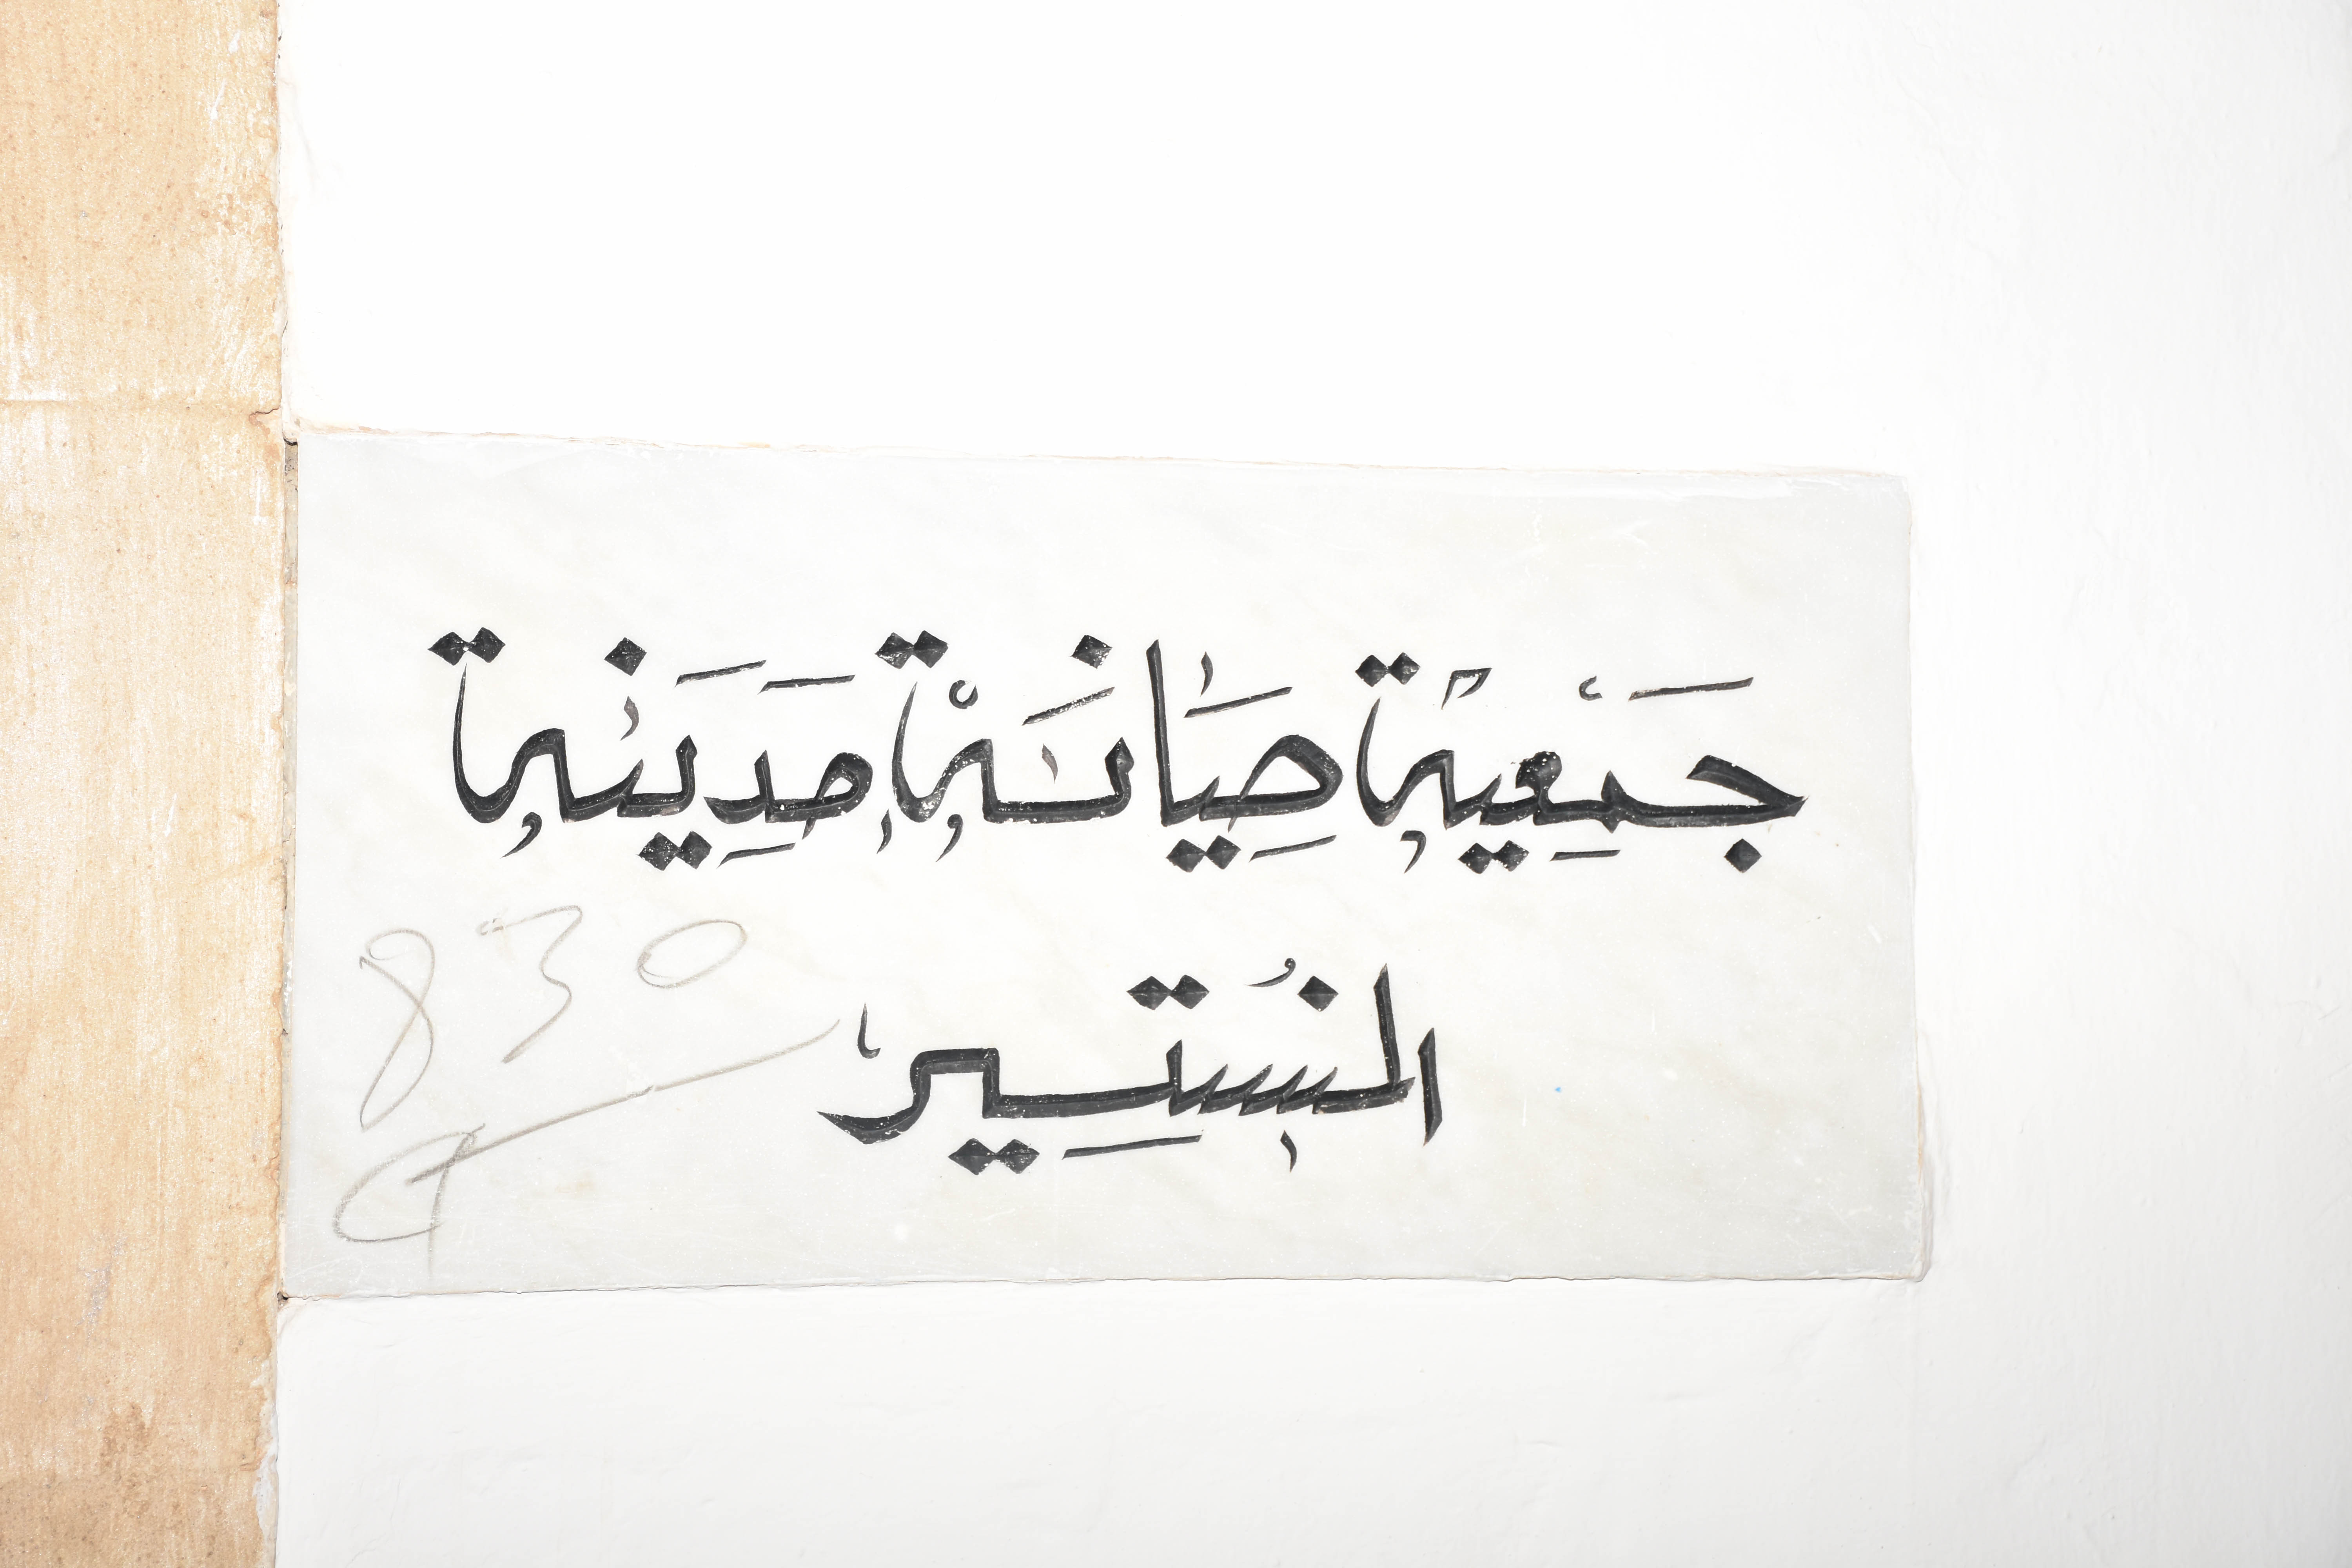 جمعية صيانة مدينة
المنستير
830